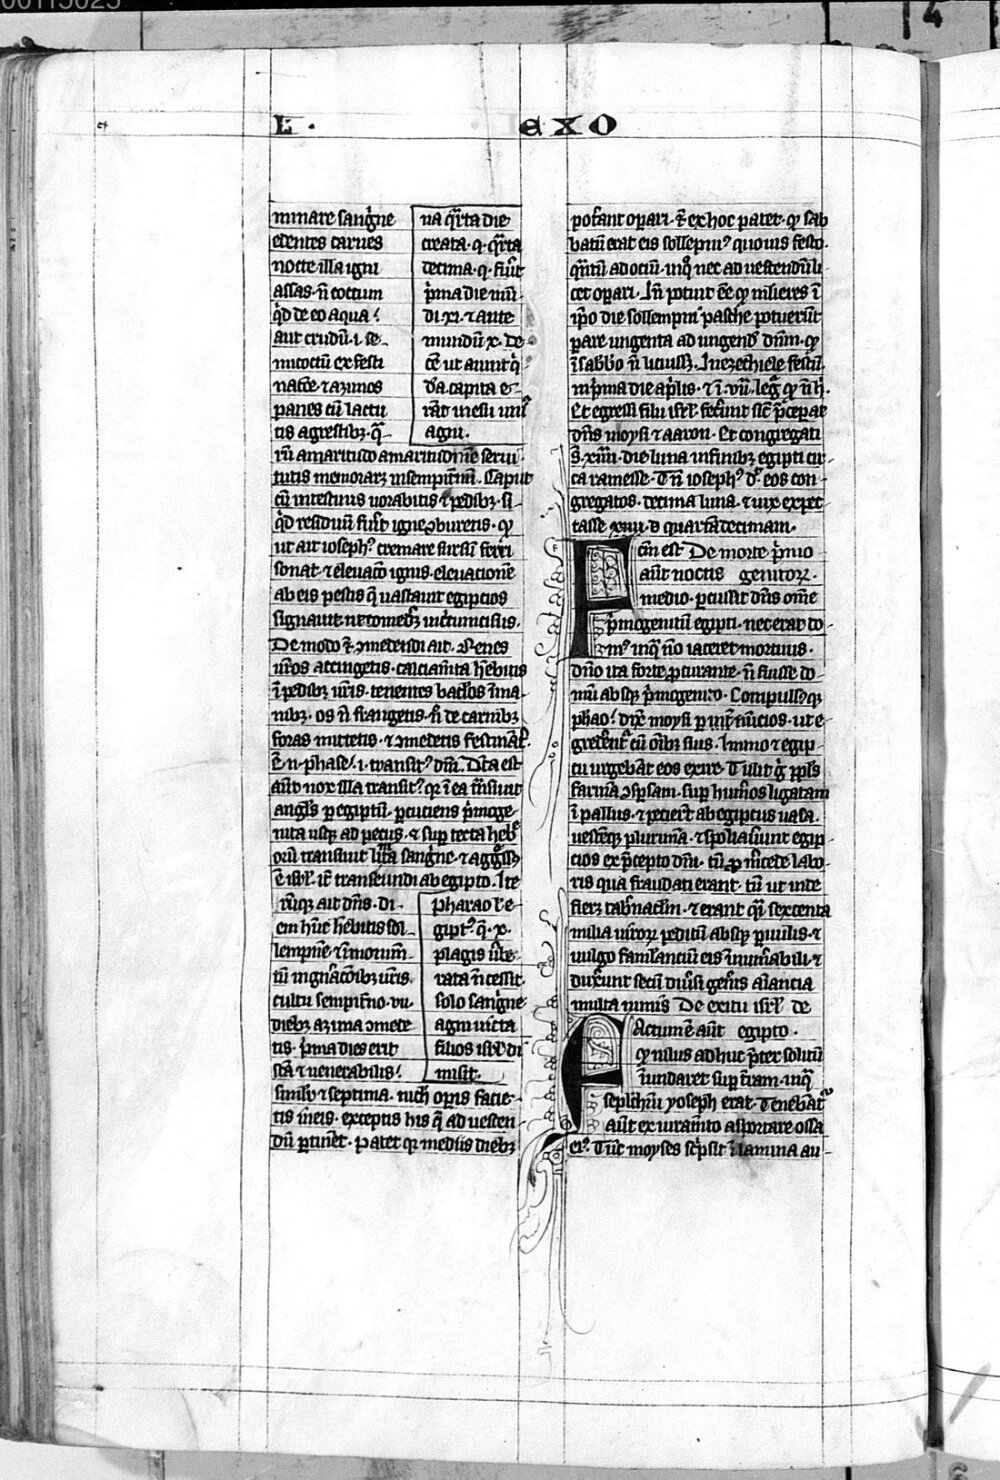 L. EXO
minare sang̾ne
edentes carnes
nocte illa igni
assas. ñ coctum
q̾d de eo aqua!
aut crudũ. i. se
micoctũ ex festi
nacõe ⁊ azimos
panes cũ lactu
tis agrestibꝫ. q̃
na q̃rta die
creata. q. q̃rta
decima. q. fiũt
p̾ma die mũ
di xi. ⁊ ante
mundũ x. de
cẽ ut aiunt q̾
d̾a. capita e
rãt in esu uni᷒
agni.
rũ amaritudo amaritudinẽ serui
tutis memorat̾ in sempit̾nũ. Caput
cũ intestinis uorabitis ⁊ pedibꝫ. si
q̾d residuũ fu̾it igne ꝯburetis. qͥ
ut ait ioseph᷒ cremare sursũ ferri
sonat. ⁊ eleuac̃o ignis. eleuationẽ
ab eis pestis q̃ uastauit egiptios
signauit ne comedꝫ incircumcisus.
De modo ⁊̃ ꝯmedendi ait. Renes
ur̃os accingetis. calciam̃ta hebitis
ĩ pedibꝫ ur̃is. tenentes bac̃los ĩ ma
nibꝫ. os ñ frangetis. ñ de carnibꝫ
foras mittetis. ⁊ ꝯmedetis festinãt̾.
Ẽ. n. phase. i. transit᷒ dñi. Dc̃a est
aũt nox illa transit᷒. qꝛ ĩ ea trãsiuit
angl̃s ꝑ egiptũ. ꝑcutiens p̾moge
nita usqꝫ ad pecus. ⁊ sup̱ tecta heb̾
orũ transiuit lita sang̾ne. ⁊ agg̾ssꝫ
ẽ isrl̃. it̾ transeundi ab egipto. Ite
rũqꝫ ait dñs. di
em hũc hẽbitis sol
lempnẽ ⁊ ĩmorum
tũ in gñac̃oibꝫ ur̃is
cultu sempit̾no. vii
diebꝫ azima ꝯmede
tis. p̾ma dies erit
sc̃a ⁊ uenerabilis!
pharao ⁊ e
gipt᷒. q̃. x.
plagis ite
rata ñ cessit.
solo sang̾ne
agni uicta
filios isrl̃ di
misit.
simil̾r ⁊ septima. nich̾ oꝑis facie
tis ĩ eis. exceptis his q̃ ad uescen
dũ ꝑtinẽt. Patet qͥ mediis diebꝫ
posͣant oꝑari. ⁊̃ ex hoc patet. qͥ sab
batũ erat eis sollẽpni᷒ quouis festo.
q̃ntũ ad ociũ. inq̾ nec ad uescendũ li
cet oꝑari. Iñ potuit eẽ qͥ mlieres ĩ
ip̃o die sollempni pasche potuerũt
ꝑare ungenta ad ungend̾ dñm. qͥ
ĩ sabb̃o ñ licuissꝫ. In ezechiele festũ
in p̾ma die ap̾lis. ⁊ ĩ. vii. leg̾t̾ qͥ ñ h̾.
Et egressi filii isrl̃. fec̾unt sic̃ p̾ceꝑat
dñs moysi ⁊ aaron. Et congregati
s̃. xiiii. die luna in finibꝫ egipti cir
ca ramesse. Tñ ioseph᷒ d̾r eos con
gregatos. decima luna. ⁊ uix expec
tasse xiiii. ⁊ quartãdecimam.
F c̃m est De morte p̾mo
aũt noctis genitorꝝ.
medio. ꝑcussit dñs om̃e
p̾mogenitũ egipti. nec erat do
m᷒ inq̾ ñ iaceret mortuus.
dño ita forte ꝓcurante. ñ fuisse do
mũ absqꝫ p̾mogenito. Compulsꝫqꝫ
phao! dix̾ moysi ꝑ int̾nũcios. ut e
gredẽnt̾ cũ oĩbꝫ suis. Immo ⁊ egip
tii urgebãt eos exire. Tulit g̾ ppl̃s
farinã ꝯsp̱sam. sup̱ hum̾os ligatam
ĩ palliis. ⁊ petiert̾ ab egiptiis uasa.
uestẽqꝫ plurimã. ⁊ spoliaũunt egip
cios ex p̾cepto dñi. tũ ꝓ m̾cede labo
ris qua fraudati erant. tũ ut inde
fieret̾ tab̾nac̃lm. ⁊ erant q̃i sexcenta
milia uirorꝝ peditũ absqꝫ ꝑuulis. ⁊
uulgo famul̃antiũ eis ĩnum̾abili. ⁊
dux̾unt secũ diu̾si gen̾is aĩancia
multa nimis De exitu isrl̃ de
F Actum ẽ aũt egipto.
qͥ nilus adhuc p̾ter solitũ
ĩundaret sup̱ t̾ram. inq̾
sepulchrũ yoseph erat. Tenebãt̾
aũt ex iuram̃to asportare ossa
ei᷒. Tũc moyses sc̾psit ĩ lamina au